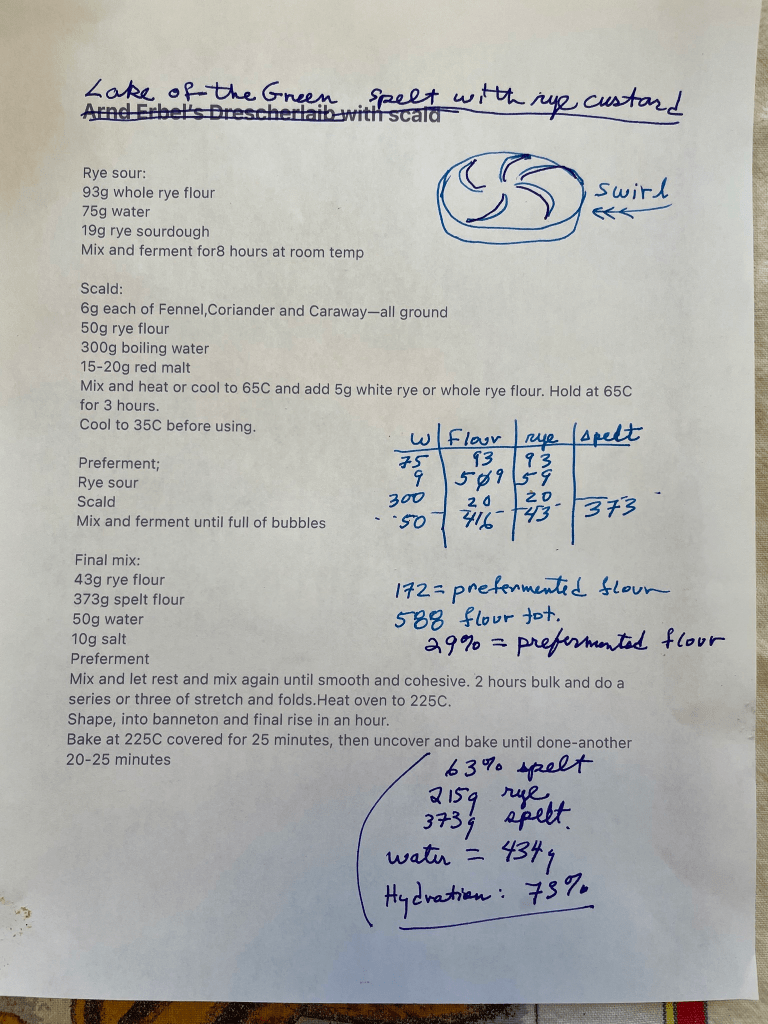 Lake of the Green spelt with rye custard
Arnd Erbel's Drescherlaib with scald
Rye sour:
93g whole rye flour
75g water
19g rye sourdough
Mix and ferment for8 hours at room temp
swirl
Scald:
6g each of Fennel,Coriander and Caraway—all ground
50g rye flour
300g boiling water
15-20g red malt
Mix and heat or cool to 65C and add 5g white rye or whole rye flour. Hold at 65C
for 3 hours.
Cool to 35C before using.
W Flour rye spelt
75 93 93
9 509 59
300 20 20
50 416 43 373
Preferment;
Rye sour
Scald
Mix and ferment until full of bubbles
Final mix:
43g rye flour
373g spelt flour
50g water
10g salt
Preferment
172 = prefermented flour
588 flour tot.
29% = prefermented flour
Mix and let rest and mix again until smooth and cohesive. 2 hours bulk and do a
series or three of stretch and folds.Heat oven to 225C.
Shape, into banneton and final rise in an hour.
Bake at 225C covered for 25 minutes, then uncover and bake until done-another
20-25 minutes
63% spelt
215g rye
373g spelt.
water = 434g
Hydration: 73%